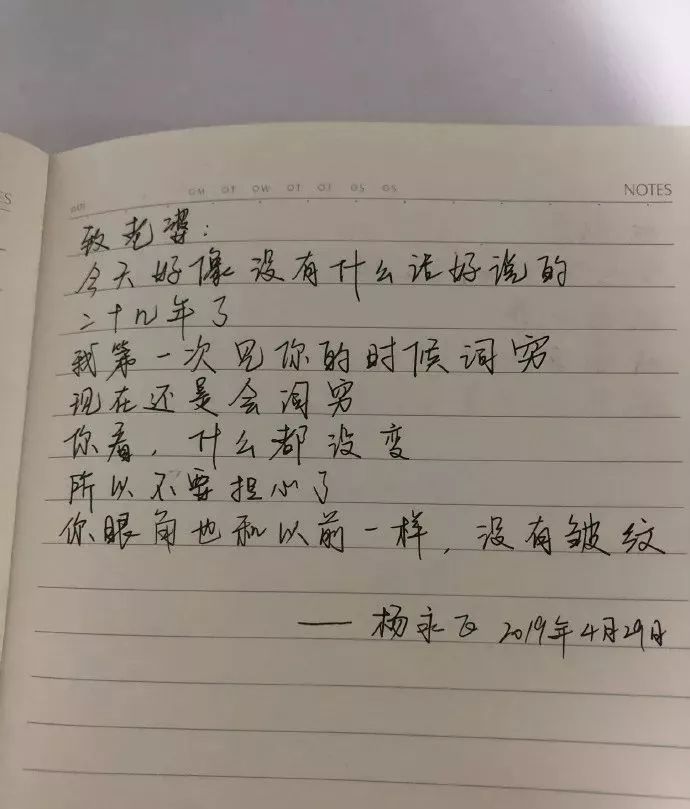 NOTES
致老婆:
今天好像没有什么话好说的
二十九年了
我第一次见你的时候词穷
现在还是会词穷
你看,什么都没变
所以不要担心了
你眼角也和以前一样,没有皱纹
——杨永飞 2019年4月29日